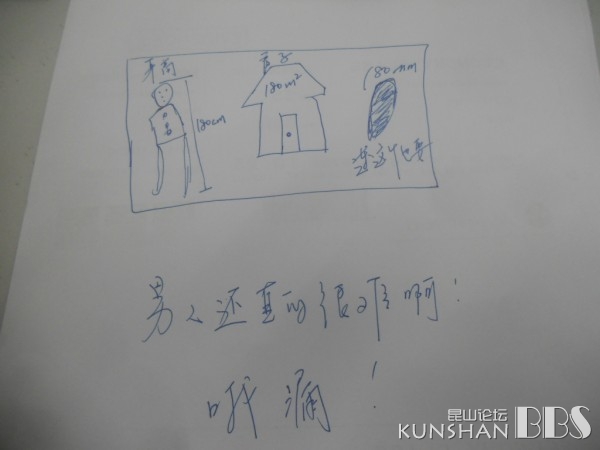 身高
180cm
房子
180m²
180mm
男人还真的很难啊！
哦漏！
昆山论坛
KUNSHAN BBS